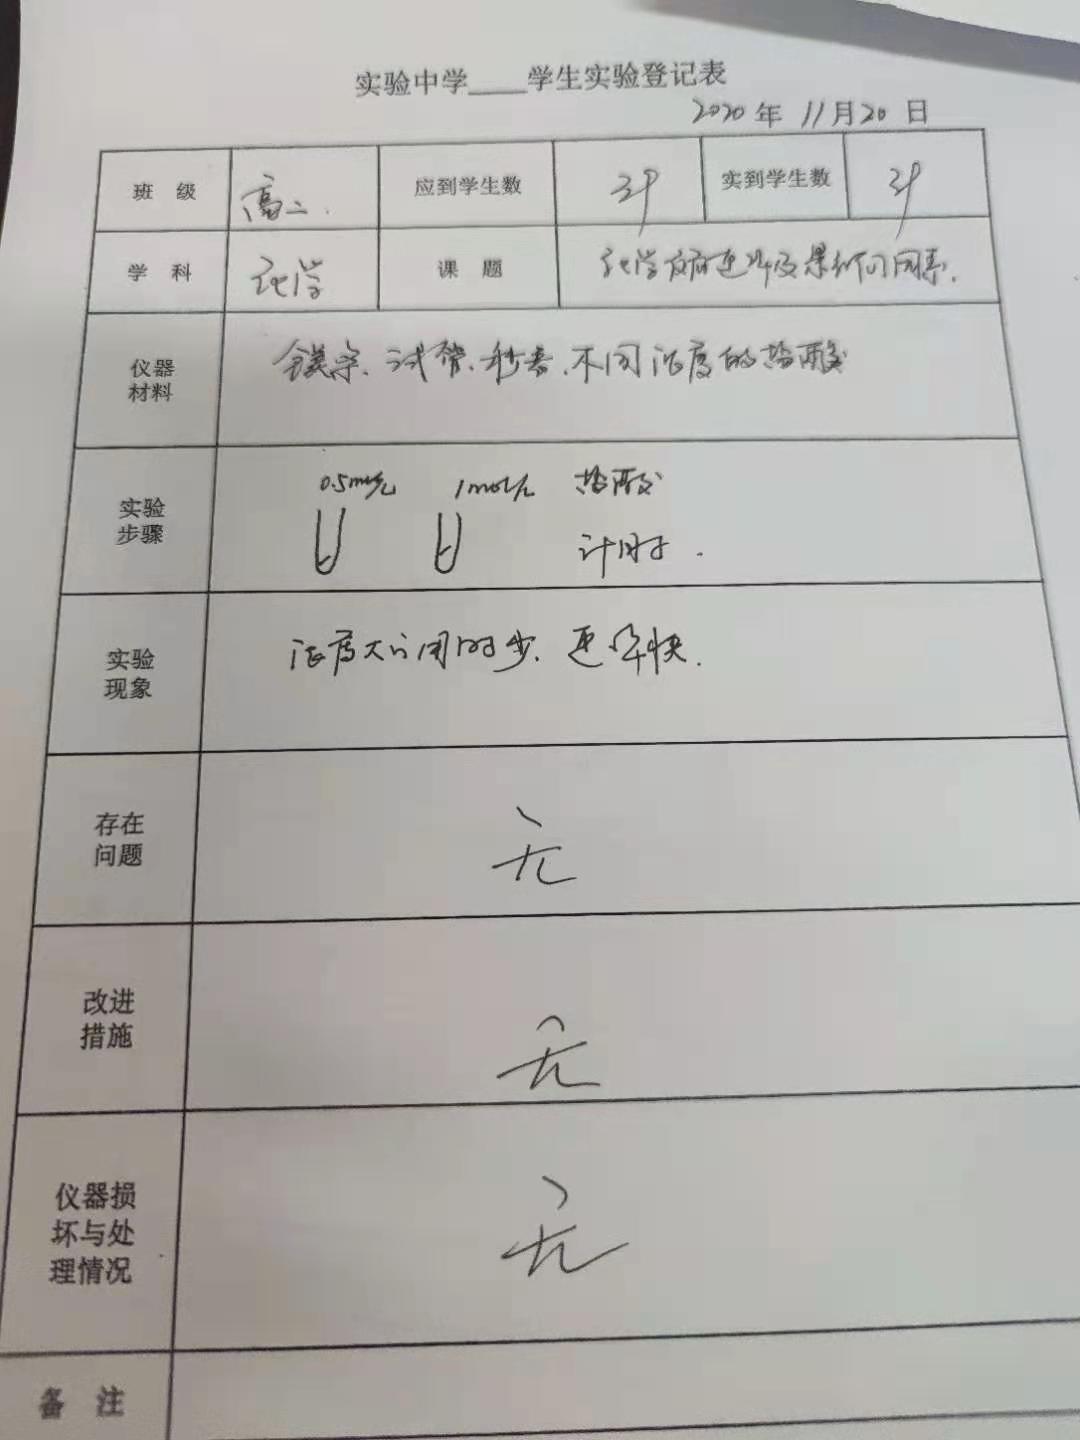 实验中学____学生实验登记表
2020年 11月20日
班 级 高二. 应到学生数 实到学生数
学 科 化学 课 题 化学反应速率及影响因素.
仪器材料 镁条、试管、秒表、不同浓度的盐酸
实验步骤 0.5mol/L 1mol/L 盐酸
计时.
实验现象 浓度大 用时少、速率快.
存在问题 无
改进措施 无
仪器损坏与处理情况 无
备 注